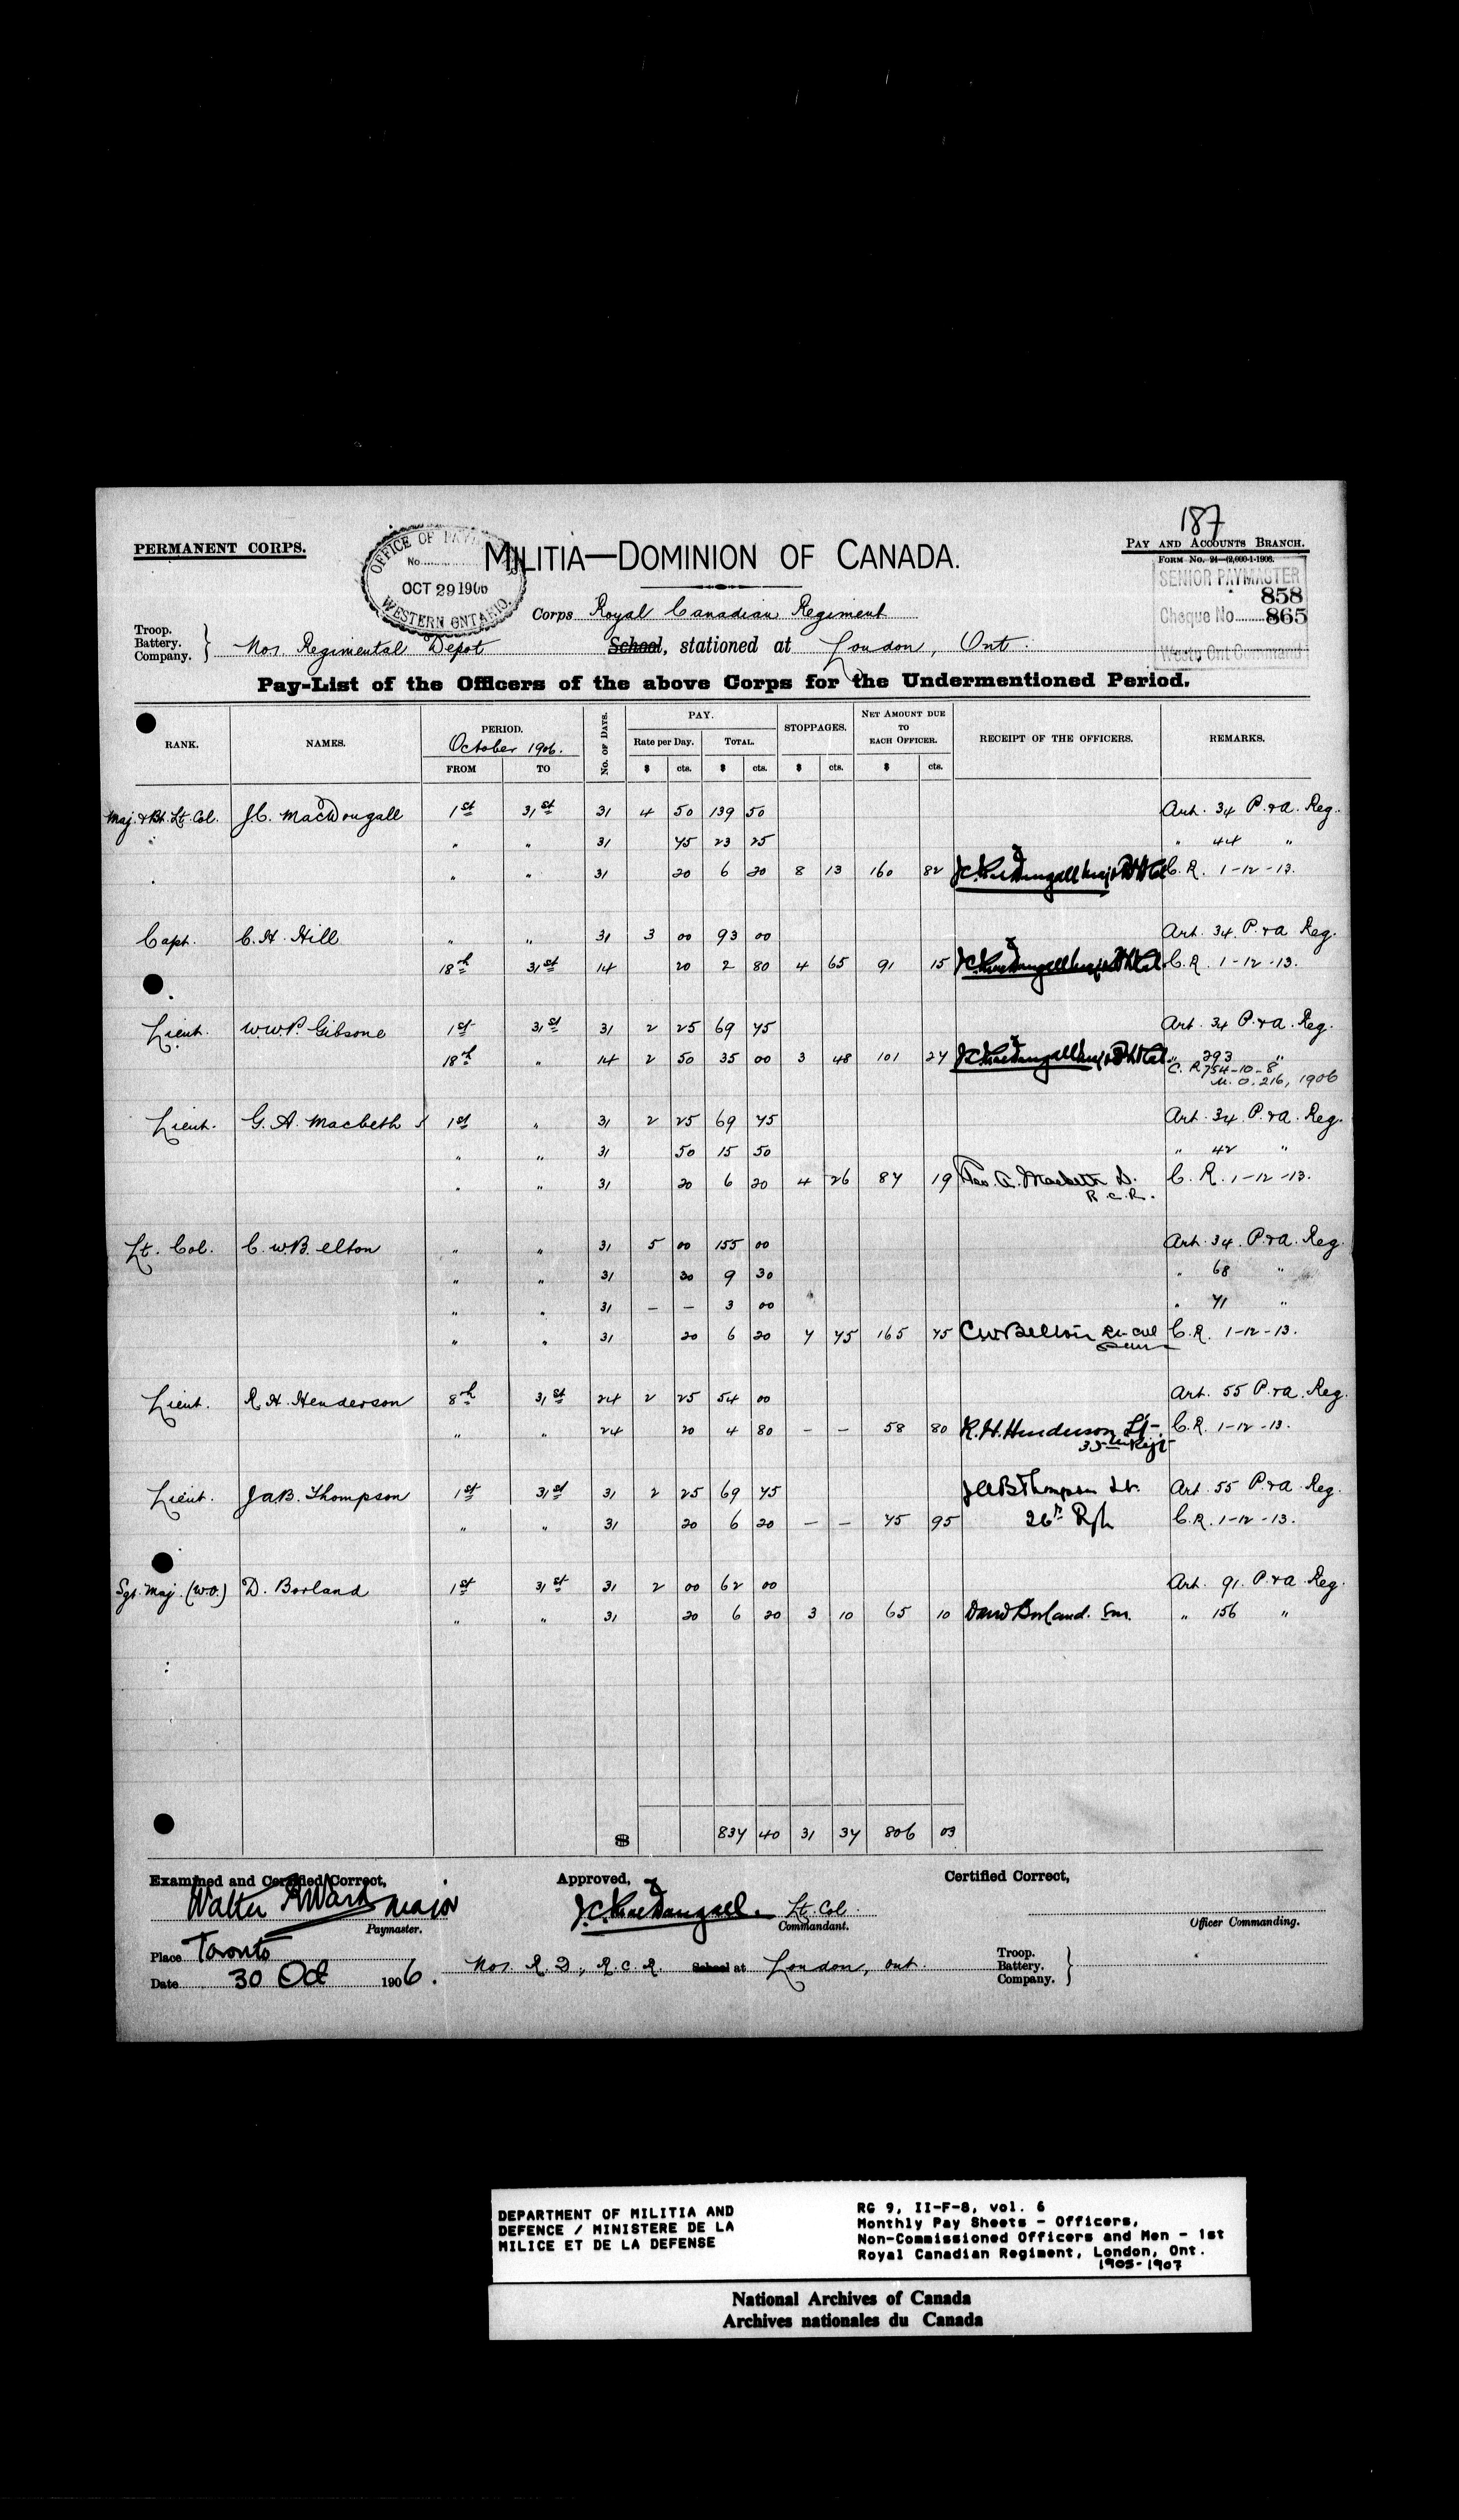 187
PERMANENT CORPS.
MILITIA—DOMINION OF CANADA.
PAY AND ACCOUNTS BRANCH.
FORM No. 24—(2,000-1-1906.
OFFICE OF
No.
OCT 29 1906
WESTERN ONTARIO.
SENIOR PAYMASTER
858
Cheque No. 865
Westn Ont Command
Corps Royal Canadian Regiment
Troop.
Battery.
Company. } No. 1 Regimental Depot School, stationed at London, Ont.
Pay-List of the Officers of the above Corps for the Undermentioned Period.
RANK. NAMES. PERIOD. October 1906. FROM TO No. OF DAYS. PAY. Rate per Day. $ cts. TOTAL. $ cts. STOPPAGES. $ cts. NET AMOUNT DUE TO EACH OFFICER. $ cts. RECEIPT OF THE OFFICERS. REMARKS.
Maj. & Bt. Lt. Col. J.C. MacDougall 1st 31st 31 4 50 139 50 Art. 34 P. & A. Reg.
" " 31 75 23 25 " 44 "
" " 31 20 6 20 8 13 160 82 J.C. MacDougall Maj & Bt Lt Col C.R. 1-12-13.
Capt. C.H. Hill " " 31 3 00 93 00 Art. 34 P. & A. Reg.
18th 31st 14 20 2 80 4 65 91 15 J.C. MacDougall Maj & Bt Lt Col. C.R. 1-12-13.
Lieut. W.W.P. Gibsone 1st 31st 31 2 25 69 75 Art. 34 P. & A. Reg.
18th " 14 2 50 35 00 3 48 101 27 J.C. MacDougall Maj & Bt Lt Col. " 293 "
C.R. 754-10-8
M.O. 216, 1906
Lieut. G.A. Macbeth 1st " 31 2 25 69 75 Art. 34 P. & A. Reg.
" " 31 50 15 50 " 42 "
" " 31 20 6 20 4 26 87 19 Geo. A. Macbeth Lt. C.R. 1-12-13.
R.C.R.
Lt. Col. C.W. Belton " " 31 5 00 155 00 Art. 34 P. & A. Reg.
" " 31 30 9 30 " 68 "
" " 31 — — 3 00 " 71 "
" " 31 20 6 20 7 75 165 75 C W Belton Lt-Col C.R. 1-12-13.
Lieut. R.H. Henderson 8th 31st 24 2 25 54 00 Art. 55 P. & A. Reg.
" " 24 20 4 80 — — 58 80 R.H. Henderson Lt. C.R. 1-12-13.
35th Regt
Lieut. J.A.B. Thompson 1st 31st 31 2 25 69 75 J A B Thompson Lt. Art. 55 P. & A. Reg.
" " 31 20 6 20 — — 75 95 26th Rgt C.R. 1-12-13.
Sgt. Maj. (W.O.) D. Borland 1st 31st 31 2 00 62 00 Art. 91. P. & A. Reg.
" " 31 20 6 20 3 10 65 10 David Borland. S.M. " 156 "
$ 837 40 31 37 806 03
Examined and Certified Correct, Approved, Certified Correct,
Walter R Ward Major J.C. MacDougall. Lt. Col.
Paymaster. Commandant. Officer Commanding.
Place Toronto
Date 30 Oct 1906. No. 1 R.D., R.C.R. School at London, Ont.
Troop.
Battery.
Company. }
DEPARTMENT OF MILITIA AND
DEFENCE / MINISTERE DE LA
MILICE ET DE LA DEFENSE
RG 9, II-F-8, vol. 6
Monthly Pay Sheets - Officers,
Non-Commissioned Officers and Men - 1st
Royal Canadian Regiment, London, Ont.
1905-1907
National Archives of Canada
Archives nationales du Canada